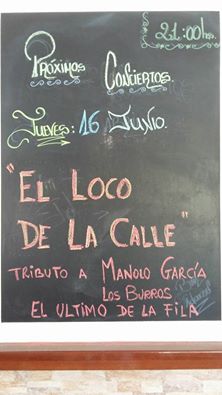 21:00hs
Próximos Conciertos.
Jueves: 16 Junio.
"El Loco
De La Calle"
Tributo a Manolo García
Los Burros
El Ultimo de la Fila